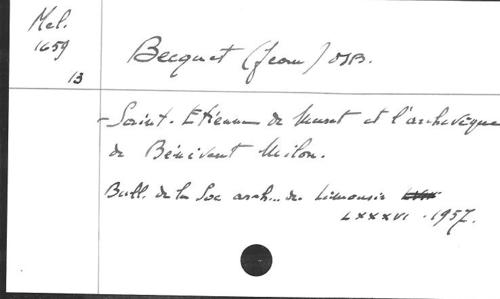 Mel.
1659
13
Becquet (Jean) OSB.
- Saint-Etienne de Muret et l'archevêque
de Bénévent Milon.
Bull. de la Soc arch... du Limousin
LXXXVI - 1957.